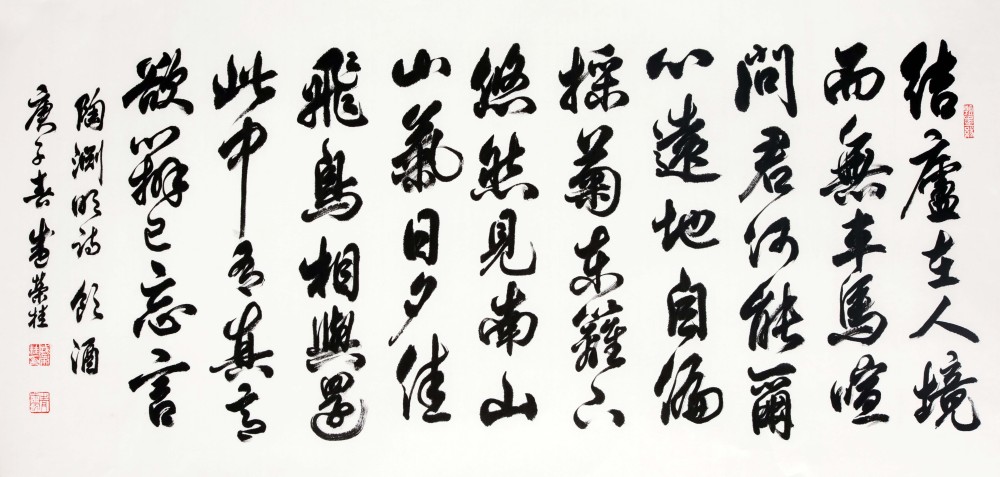 結廬在人境
而無車馬喧
問君何能爾
心遠地自偏
採菊東籬下
悠然見南山
山氣日夕佳
飛鳥相與還
此中有真意
欲辨已忘言
陶淵明詩 飲酒
庚子春 榮桂